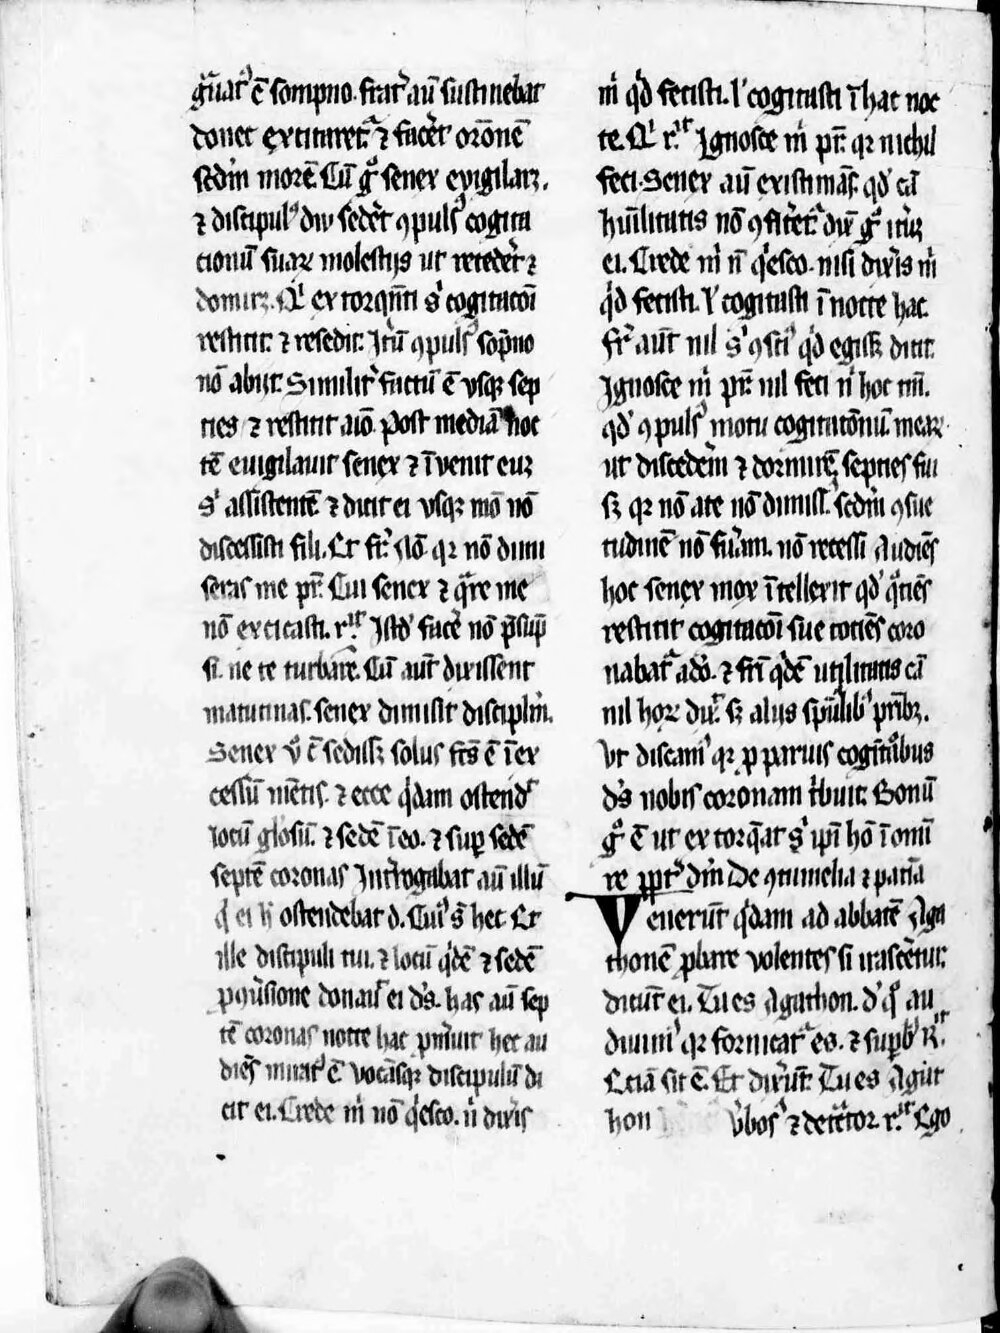 g̃uat᷒ ē sompno. frat̉ aū sustinebat
donec excitaret᷒ ⁊ fac̉et or̄onē
sed̉m morē. Cū gͦ senex evigilar̄ꝫ.
⁊ discipulꝰ diu sed̉et ꝯpulsꝰ cogita
tionū suaꝝ molestijs ut reced̉et ⁊
dormir̄ꝫ. Qͥ extorqn̄ti sͥ cogitac̄oi
restitit. ⁊ resedit. It̉ū ꝯpulsꝰ sōpno
nō abijt. Similit̉ factū ē vsqꝫ sep
ties ⁊ restitit aīo. post mediā noc
tē euigilauit senex ⁊ īvenit euꝫ
sͥ assistentē ⁊ dicit ei vsqꝫ mō nō
discessisti fili. Et fr̄. Nō. qꝛ nō dimi
seras me pr̄. Cui senex ⁊ qͣre me
nō excitasti. r.ⁱᵗ Istdͩ fac̉e nō p̄sūp
si. ne te turbarē. Cū aūt dixissent
matutinas. senex dimisit disciplm̄.
Senex v̉o ē sedissꝫ solus fc̄s ē ī ex
cessū mētis. ⁊ ecce qͥdam ostendͭ
locū gl̉osū. ⁊ sedē ī eo. ⁊ suꝑ sedē
septē coronas Int̉rogabat aū illū
qͥ ei h̄ ostendebat d. Cuiꝰ st̄ hec Et
ille discipuli tui. ⁊ locū qͥdē ⁊ sedē
ꝓ ꝯủsione donauͭ ei ds̄. has aū sep
tē coronas nocte hac ꝓm̉uit hec au
diēs miratꝰ ē vocāsqꝫ discipulū di
cit ei. Crede m̄ nō qͥesco. n̄ dix̉is
m̄ qͥd fecisti. lͥ cogitasti ī hac noc
te. Qͥ r.ⁱᵗ Ignosce m̄ pr̄. qꝛ nichil
feci. Senex aū existimās. qdͩ cā
hūilitatis nō ꝯfit̉et᷒ dix̄ gͦ it̉uꝫ
ei. Crede m̄ n̄ qͥesco. nisi dix̉is m̄
qͥd fecisti. lͥ cogitasti ī nocte hac
fr̄ aūt nil sͥ ꝯsciꝰ qͥd egissꝫ dicit.
Ignosce m̄ pr̄ nil feci n̄ hoc tm̄.
qdͩ ꝯpulsꝰ motu cogitatōnū meaꝝ
ut disced̉em ⁊ dormirē septies fui
sꝫ qꝛ nō a te nō dimiss̉. sed̉m ꝯsue
tudinē nō fủam. nō recessi Audiēs
hoc senex mox ītellexit qdͩ qͦciēs
restitit cogitac̄oi sue tociēs coro
nabat᷒ a dō. ⁊ fr̄i qͥdē utilitatis cā
nil hoꝝ dix̉. sꝫ alijs spūalibꝰ pr̄ibꝫ.
Vt discamꝰ qꝛ ꝓ paruis cogit̄acōibus
ds̄ nobis coronam t̉buit. Bonū
gͦ ē ut extorqͣat sͥ ip̄i hō ī omī
re ꝓpt̉ dm̄. De ꝯtumelia ⁊ paciā
Venerūt qͥdam ad abbatē Aga
thonē ꝓbare volentes si irascēretur.
dicūt ei. Tu es Agathon. d̉ qͦ au
diuimꝰ qꝛ fornicat᷒ es. ⁊ suꝑbꝰ R.ⁱᵗ
Etiā sit̄ ē. Et dix̉ūt. Tu es Agat
hon v̉bosꝰ ⁊ detͣctor. r.ⁱᵗ Ego